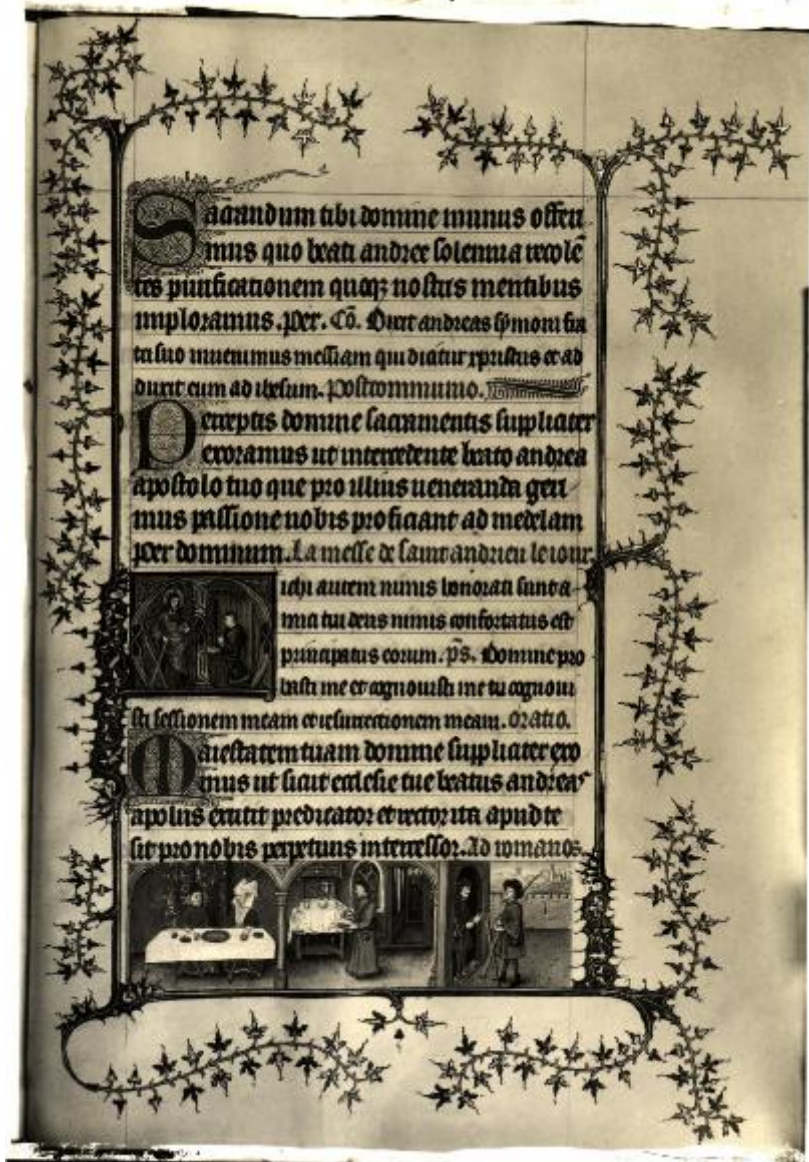 Sacrandum tibi domine munus offeri
mus quo beati andree solennia recolē
tes purificationem quoqꝫ nostris mentibus
imploramus. Per. Cō. Dixit andreas symoni fra
tri suo inuenimus messiam qui dicitur xpristus et ad
duxit eum ad ihesum. Postcommunio.
Perceptis domine sacramentis suppliciter
exoramus ut intercedente beato andrea
apostolo tuo que pro illius ueneranda geri
mus passione nobis proficiant ad medelam
Per dominum. La messe de saint andrieu le iour.
Michi autem nimis honorati sunt a
mici tui deus nimis confortatus est
principatus eorum. p̄s. Domine pro
basti me et cognouisti me tu cognoui
sti sessionem meam et resurrectionem meam. Oratio.
Maiestatem tuam domine suppliciter exo
mus ut sicut ecclesie tue beatus andreas
apolus extitit predicator et rector ita apud te
sit pro nobis perpetuus intercessor. Ad romanos.